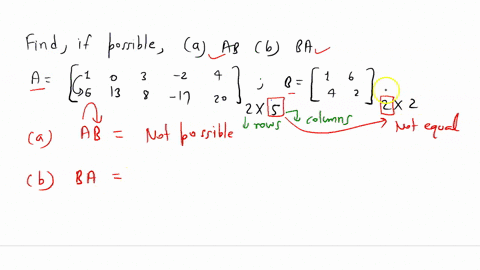 Find, if possible, (a) AB (b) BA
A = [ 1 0 3 -2 4 ; B = [ 1 6
6 13 8 -17 20 ] 2 X 5 4 2 ] 2 X 2
↓ rows ↓ columns Not equal
(a) AB = Not possible
(b) BA =